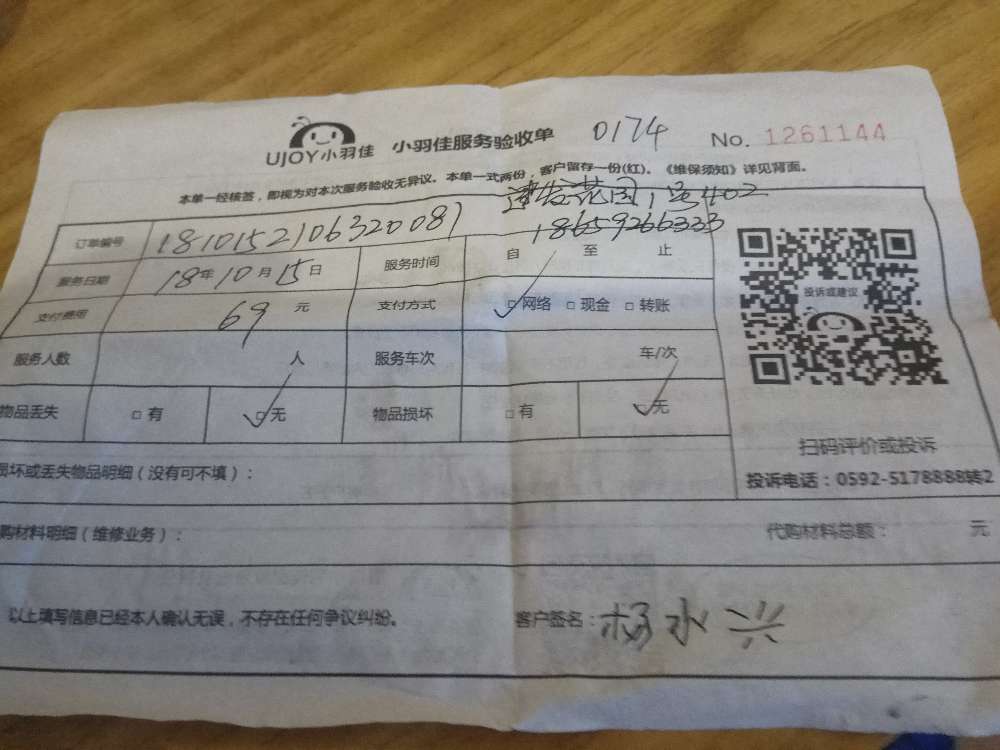 UJOY小羽佳 小羽佳服务验收单 0174 No. 1261144
本单一经核签，即视为对本次服务验收无异议。本单一式两份，客户留存一份(红)。《维保须知》详见背面。
建发花园1号402
订单编号 1810152106320081 18659266333
服务日期 18年10月15日 服务时间 自 至 止
支付费用 69 元 支付方式 ☑网络 □现金 □转账
投诉或建议
服务人数 人 服务车次 车/次
物品丢失 □有 ☑无 物品损坏 □有 ☑无
扫码评价或投诉
损坏或丢失物品明细（没有可不填）：
投诉电话：0592-5178888转2
购材料明细（维修业务）： 代购材料总额： 元
以上填写信息已经本人确认无误，不存在任何争议纠纷。 客户签名：杨水兴